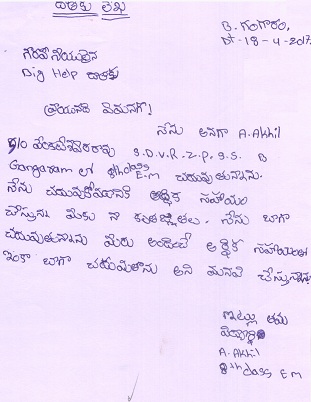 దాతకు లేఖ
B. గంగారం,
Dt - 18 - 4 - 2017
గౌరవనీయులైన
Dig Help దాతకు
వ్రాయునది ఏమనగా
నేను అనగా A. Akhil
S/o వెంకటేశ్వరరావు S.D.V.R.Z.P.S.S. B
Gangaram లో 8th class E.M చదువుతున్నాను.
నేను చదువుకోవడానికి ఆర్థిక సహాయం
చేస్తున్న మీకు నా కృతజ్ఞతలు. నేను బాగా
చదువుతున్నాను మీరు అందించే ఆర్థిక సహాయంతో
ఇంకా బాగా చదువుతాను అని మనవి చేస్తున్నాను
ఇట్లు తమ
విద్యార్థి
A. Akhil
8th class E M